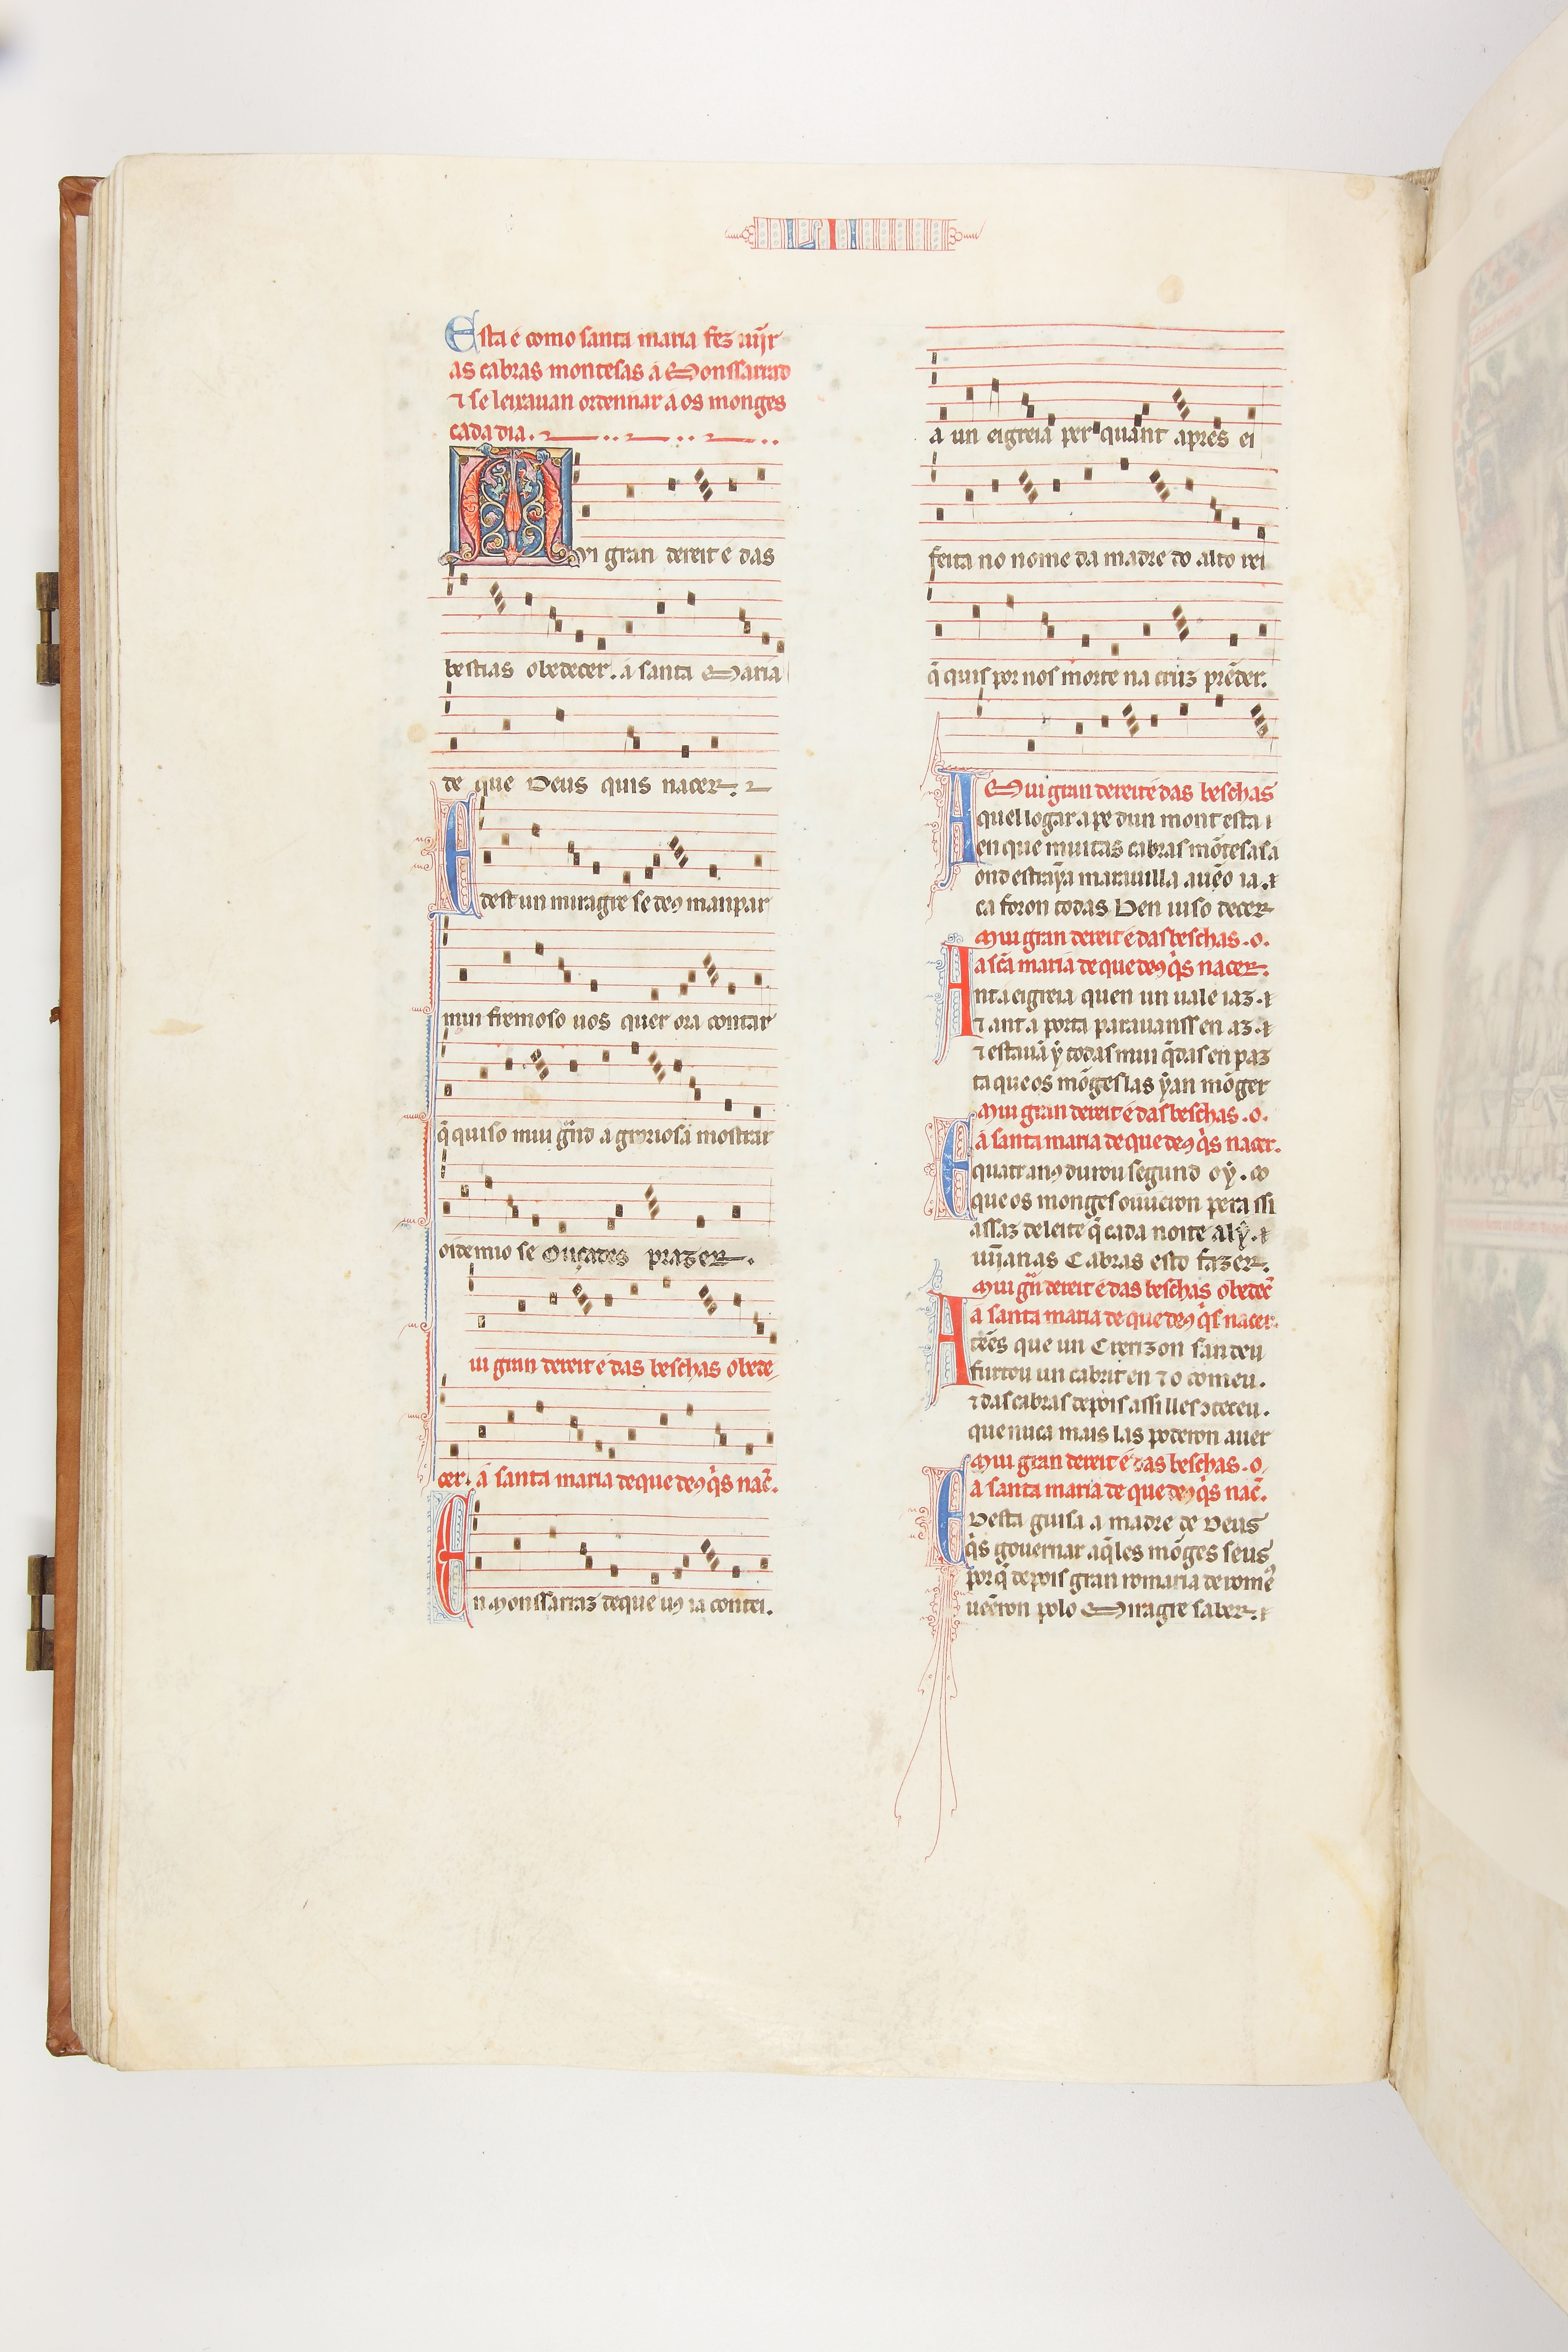 LII
Esta é como santa maria fez uĩjr
as cabras montesas a Monssarrad
⁊ se leixauan ordennar a os monges
cada dia.
MVi gran dereit é das
bestias obedecer. a santa Maria
de que Deus quis nacer.
E dest un miragre se deꝯ manpar
mui fremoso uos quer ora contar
q̃ quiso mui grãd a groriosa mostrar
oidemio se Ouçades prazer.
ui gran dereit é das beschas obede
cer. a santa maria deque deꝯ q̃s nac̃.
En Monssarraz deque uꝯ ia contei.
a un eigreia per quant apres ei
feita no nome da madre do alto rei
q̃ quis por nos morte na cruz prẽder.
Mui gran dereit é das beschas
Aquel logar a pe dun mont esta
en que muitas cabras mõtesas a
ond estraỹa marauilla auẽo ia.
ca foron todas Den iuso decer
Mui gran dereit é das beschas. o.
a scã maria de que deꝯ q̃s nacer.
Ant a eigreia quen un uale iaz.
⁊ ant a porta parauanss en az.
⁊ estauã ỹ todas mui q̃das en paz
ta que os mõges las ỹan mõger
Mui gran dereit é das beschas. o.
a santa maria de que deꝯ q̃s nacer.
E quatr anꝯ durou segund oỹ. co
que os monges ouueron pera ssi
assaz de leite q̃ cada noite aly.
uĩjan as Cabras esto fazer.
Mui grã dereit é das beschas obedec̃
a santa maria de que deꝯ q̃s nacer.
Atẽes que un Crerizon sandeu
furtou un cabrit en ⁊ o comeu.
⁊ das cabras depois assi lles ↄteceu.
que nuca mais las poderon auer
Mui gran dereit é das beschas. o.
a santa maria de que deꝯ q̃s nac̃.
E Desta guisa a madre de Deus
q̃s gouernar aq̃les mõges seus
por q̃ depois gran romaria de romeꝰ
uẽeron polo Miragre saber.